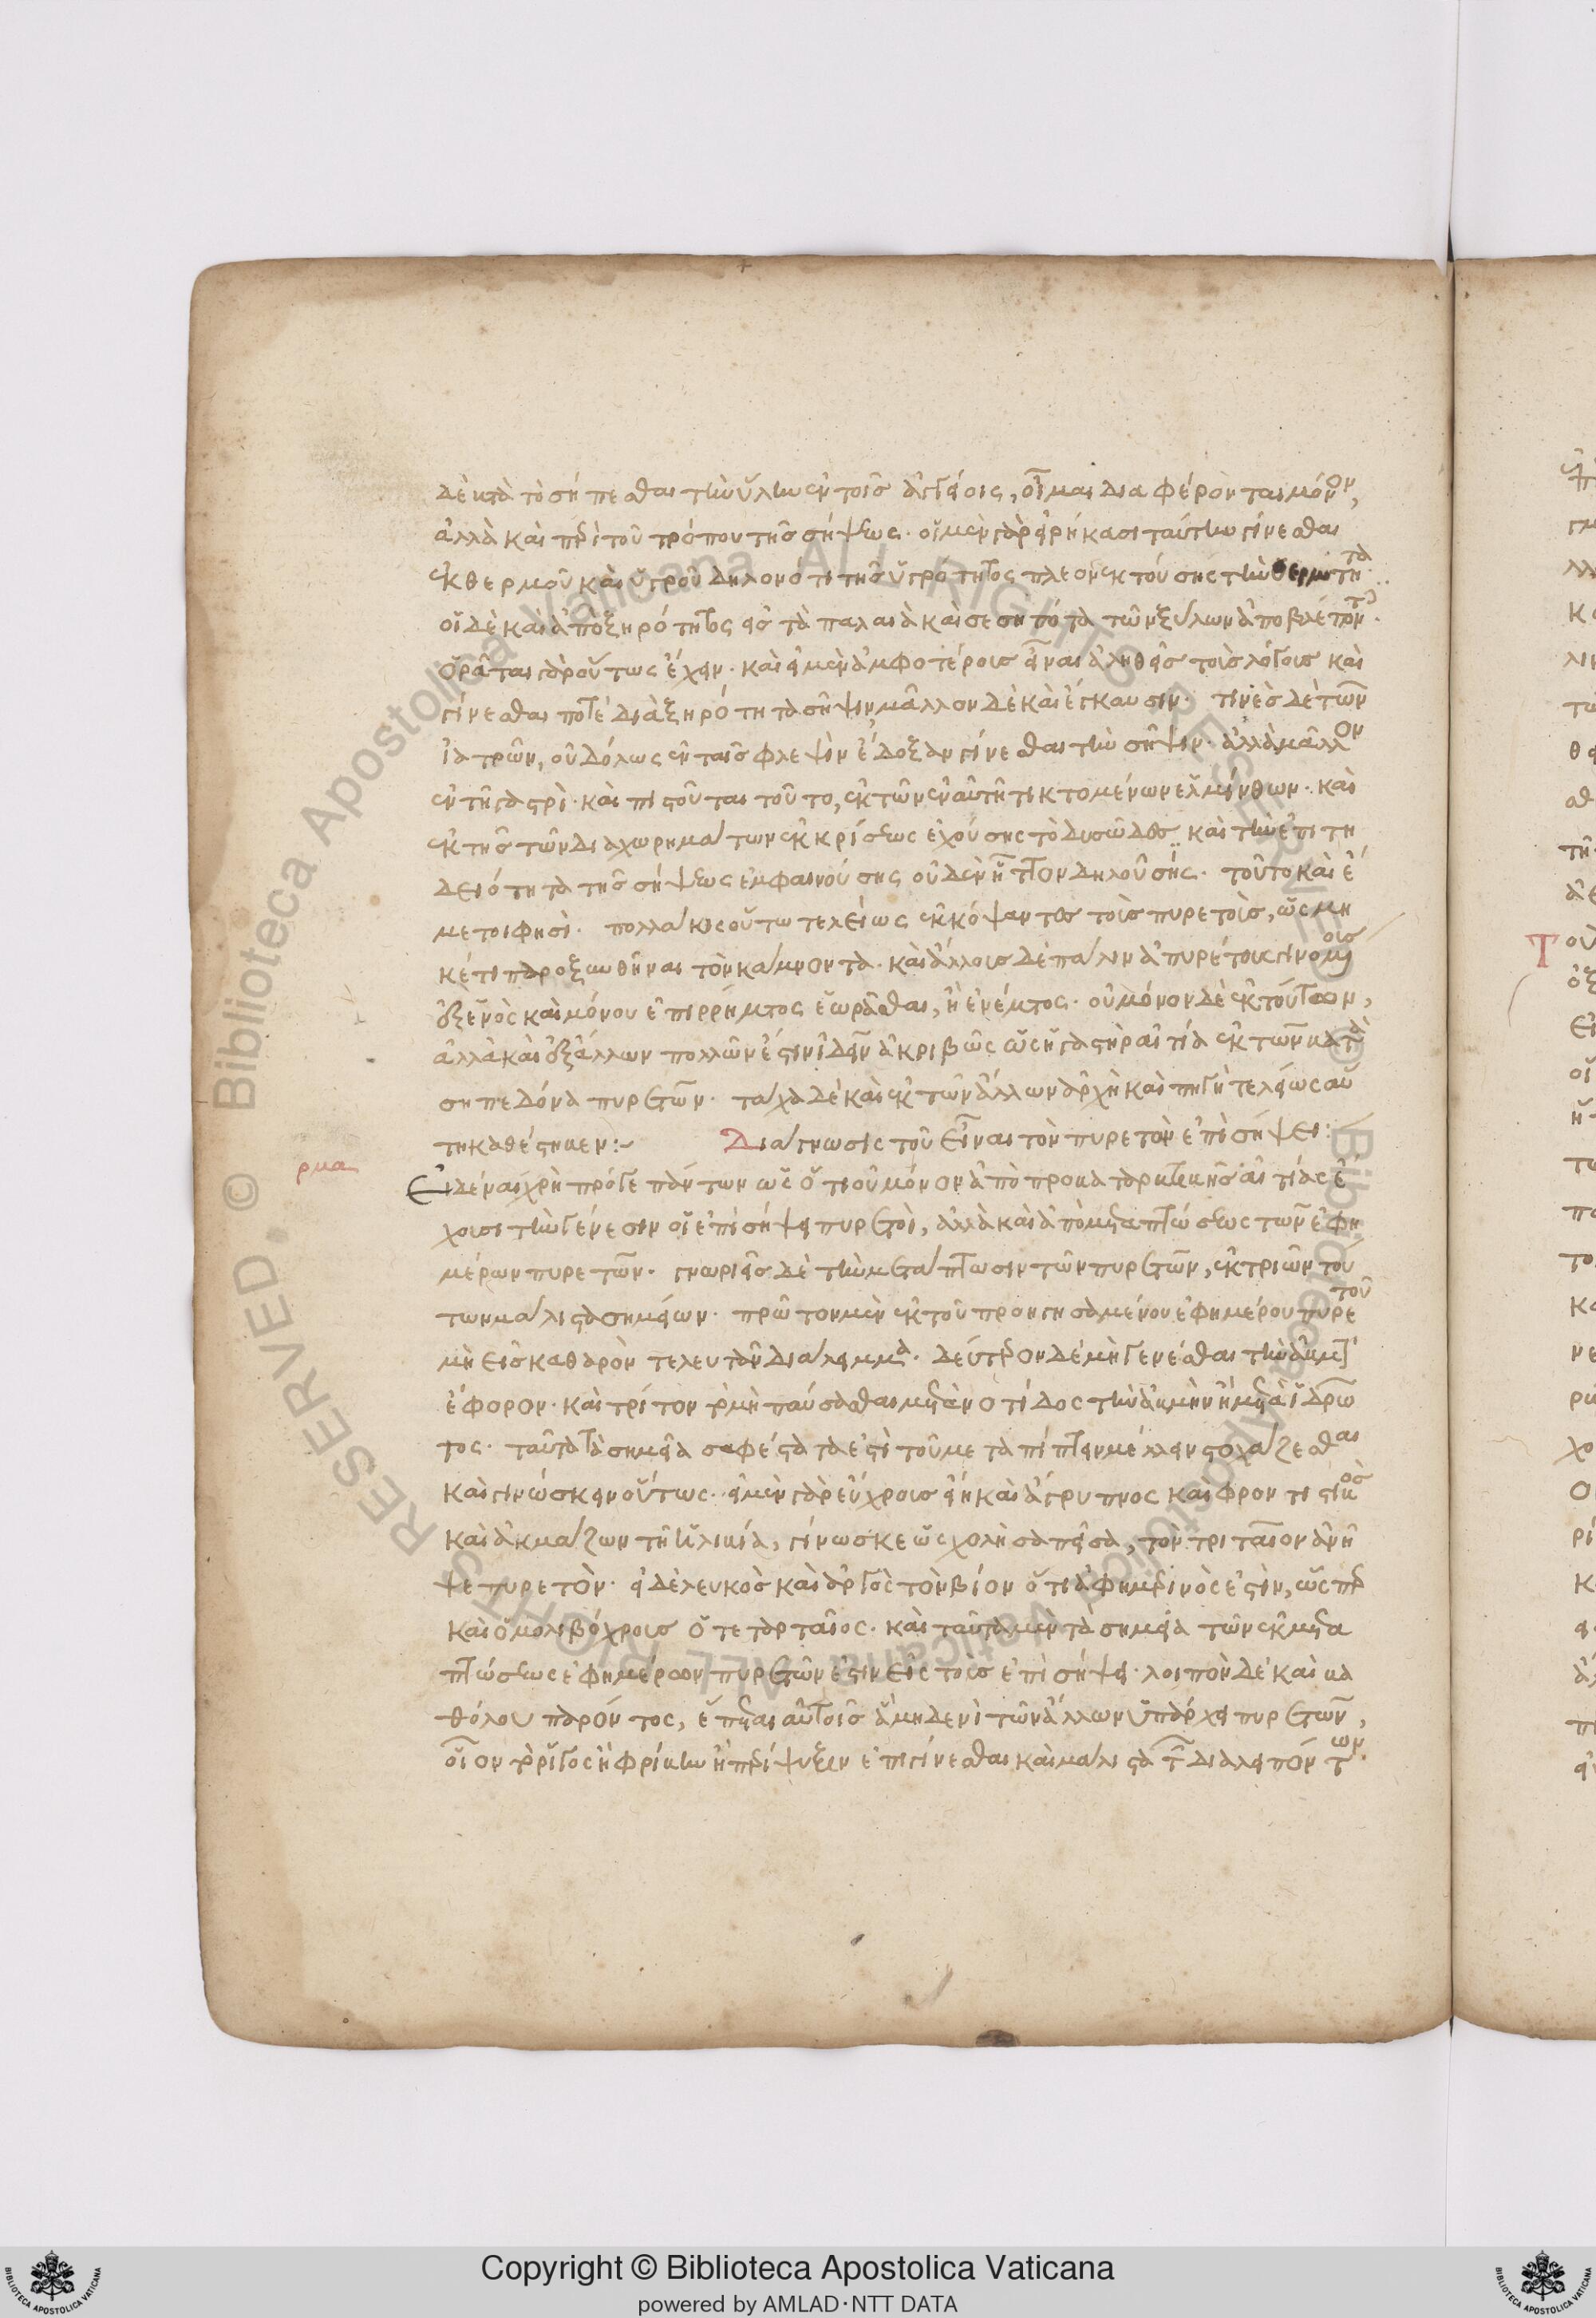 δὲ κατὰ τὸ σήπεσθαι τὴν ὕλην ἐν τοῖς ἀγγείοις, οἶμαι διαφέρονται μόνον,
ἀλλὰ καὶ περὶ τοῦ τρόπου τῆς σήψεως. οἱ μὲν γὰρ εἰρήκασι ταύτην γίνεσθαι
ἐκ θερμοῦ καὶ ὑγροῦ δηλονότι τῆς ὑγρότητος πλεονεκτούσης τὴν θερμότητα.
οἱ δὲ καὶ ἀπὸ ξηρότητος εἰς τὰ παλαιὰ καὶ σεσηπότα τῶν ξύλων ἀποβλέποντες.
ὁρᾶται γὰρ οὕτως ἔχειν. καὶ εἰ μὲν ἀμφοτέροις εἶναι ἀληθεῖς τοῖς λόγοις καὶ
γίνεσθαι ποτὲ διὰ ξηρότητα σῆψιν μᾶλλον δὲ καὶ ἔγκαυσιν. τινὲς δὲ τῶν
ἰατρῶν, οὐδόλως ἐν ταῖς φλεψὶν ἔδοξαν γίνεσθαι τὴν σῆψιν. ἀλλὰ μᾶλλον
ἐν τῇ γαστρὶ. καὶ πιστοῦται τοῦτο, ἐκ τῶν ἐν αὐτῇ τικτομένων ἑλμίνθων. καὶ
ἐκ τῆς τῶν διαχωρημάτων ἐκκρίσεως ἐχούσης τὸ δυσῶδες καὶ τὴν ἐπιτη
δειότητα τῆς σήψεως ἐμφαινούσης οὐδὲν ἧττον δηλούσης. τοῦτο καὶ ἐ
με τοι φησὶ. πολλάκις οὕτω τελείως ἐκκόψαντος τοῖς πυρετοῖς, ὡς μη
κέτι παροξυνθῆναι τὸν κάμνοντα. καὶ ἄλλοις δὲ πάλιν ἀπυρέτοις γινομένοις
ἐξ ἑνὸς καὶ μόνου ἐπιρρήματος ἑωρᾶσθαι, ἢ ἐνέματος. οὐ μόνον δὲ ἐκ τούτων,
ἀλλὰ καὶ ἐξ ἄλλων πολλῶν ἔστιν ἰδεῖν ἀκριβῶς ὡς ἡ γαστὴρ αἰτία ἐκ τῶν κατὰ
σηπεδόνα πυρετῶν. τάχα δὲ καὶ ἐκ τῶν ἄλλων ἀρχὴ καὶ πηγὴ τελείως αὕ
τη καθέστηκεν:~ Διάγνωσις τοῦ εἶναι τὸν πυρετὸν ἐπὶ σήψει:
ρμα Εἰδέναι χρὴ πρό γε πάντων ὡς ὅτι οὐ μόνον ἀπὸ προκαταρκτικῆς αἰτίας ἔ
χουσι τὴν γένεσιν οἱ ἐπὶ σήψει πυρετοὶ, ἀλλὰ καὶ ἀπὸ μεταπτώσεως τῶν ἐφη
μέρων πυρετῶν. γνωριεῖς δὲ τὴν μετάπτωσιν τῶν πυρετῶν, ἐκ τριῶν τού
των μάλιστα σημείων. πρῶτον μὲν ἐκ τοῦ προηγησαμένου ἐφημέρου πυρετοῦ
μὴ εἰς καθαρὸν τελευτᾶν διάλειμμα. δεύτερον δὲ μὴ γενέσθαι τὴν ἀκμὴν
ἔφορον. καὶ τρίτον τὸ μὴ παύσασθαι μετὰ νοτίδος τὴν ἀκμὴν ἢ μετὰ ἱδρῶ
τος. ταῦτα τὰ σημεῖα σαφέστατα ἐστὶ τοῦ μεταπίπτειν μέλλειν στοχάζεσθαι
καὶ γινώσκειν οὕτως. εἰ μὲν γὰρ εὔχρους εἴη καὶ ἄγρυπνος καὶ φροντιστικὸς
καὶ ἀκμάζων τῇ ἡλικίᾳ, γίνωσκε ὡς χολὴ σαπεῖσα, τὸν τριταῖον ἀνῆ
ψε πυρετὸν. εἰ δὲ λευκὸς καὶ ἀργὸς τὸν βίον ὅτι ἀφημερινὸς ἐστὶν, ὥσπερ
καὶ ὁ μολιβόχρους ὅτε ταρταῖος. καὶ ταῦτα μὲν τὰ σημεῖα τῶν ἐκ μετα
πτώσεως ἐφημέρων πυρετῶν ἐστιν εἰς τοὺς ἐπὶ σήψει. λοιπὸν δὲ καὶ κα
θόλου παρόντος, ἕπεται αὐτοῖς ἃ μηδενὶ τῶν ἄλλων ὑπάρχει πυρετῶν,
οἷον τὸ ῥῖγος ἢ φρίκην ἢ περίψυξιν ἐπιγίνεσθαι καὶ μάλιστα τῶν διαλειπόντων.
Copyright © Biblioteca Apostolica Vaticana
powered by AMLAD·NTT DATA